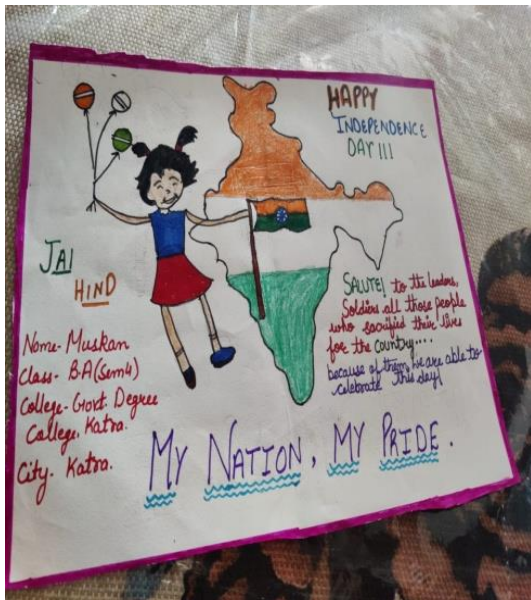 HAPPY
INDEPENDENCE
DAY !!!
JAI
HIND
SALUTE! to the leaders,
Soldiers all those people
who sacrified their lives
for the country....
because of them, we are able to
celebrate this day!
Name- Muskan
Class- BA(Sem4)
College- Govt. Degree
College, Katra.
City- Katra.
MY NATION, MY PRIDE.